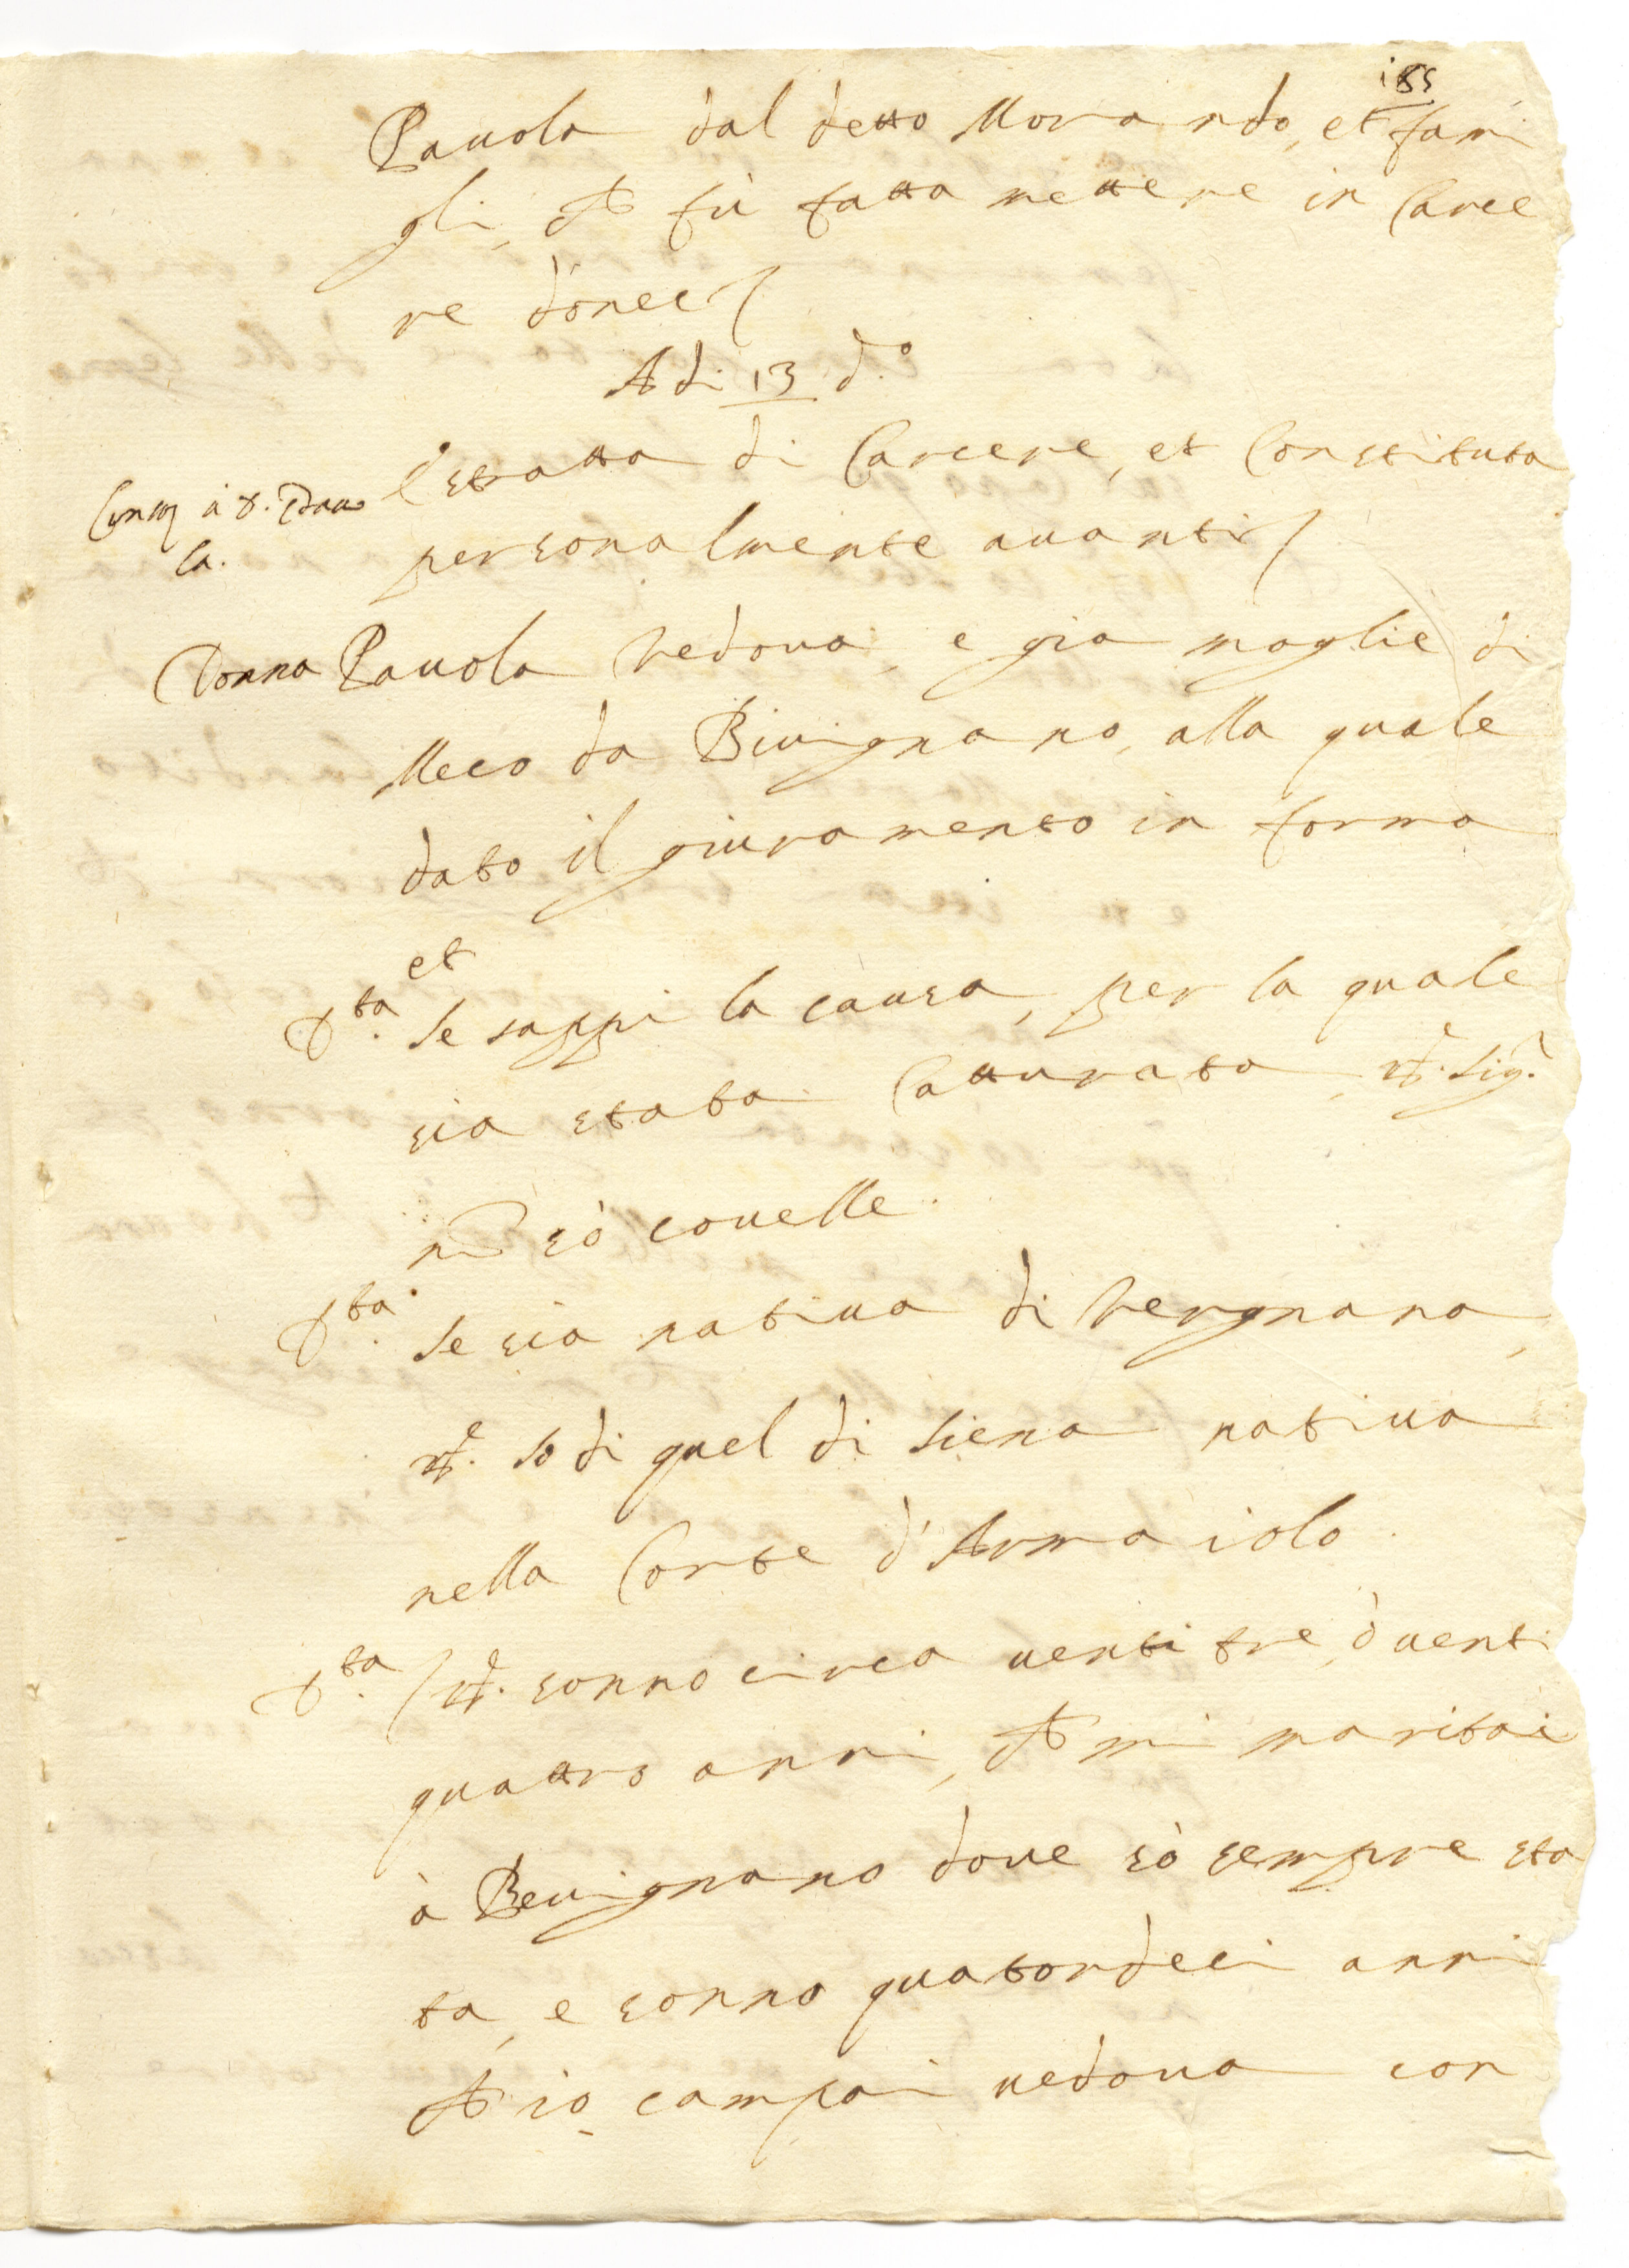 185
Pauola dal detto Morando, et fami
gli, Et fù fatta mettere in Carce
re donec
Adi 13 d.o
Estratta di Carcere, et Constituta
à d. Pauo
la.
personalmente auanti
Donna Pauola Vedoua, e gia moglie di
Meco da Biuignano, alla quale
dato il giuramento in forma
et
D.ta Se sappi la causa, per la quale
sia stata Catturata, R.e Sig.r
nō sò couelle.
D.ta Se sia natiua di Vergnano,
R.e so di quel di Siena natiua
nella Corte d'Armaiolo.
D.ta R.e sonno circa uenti tre, ò uenti
quattro anni, Et mi maritai
à Beuignano doue sò sempre sta
ta, e sonno quatordeci anni
Et io campai uedoua con